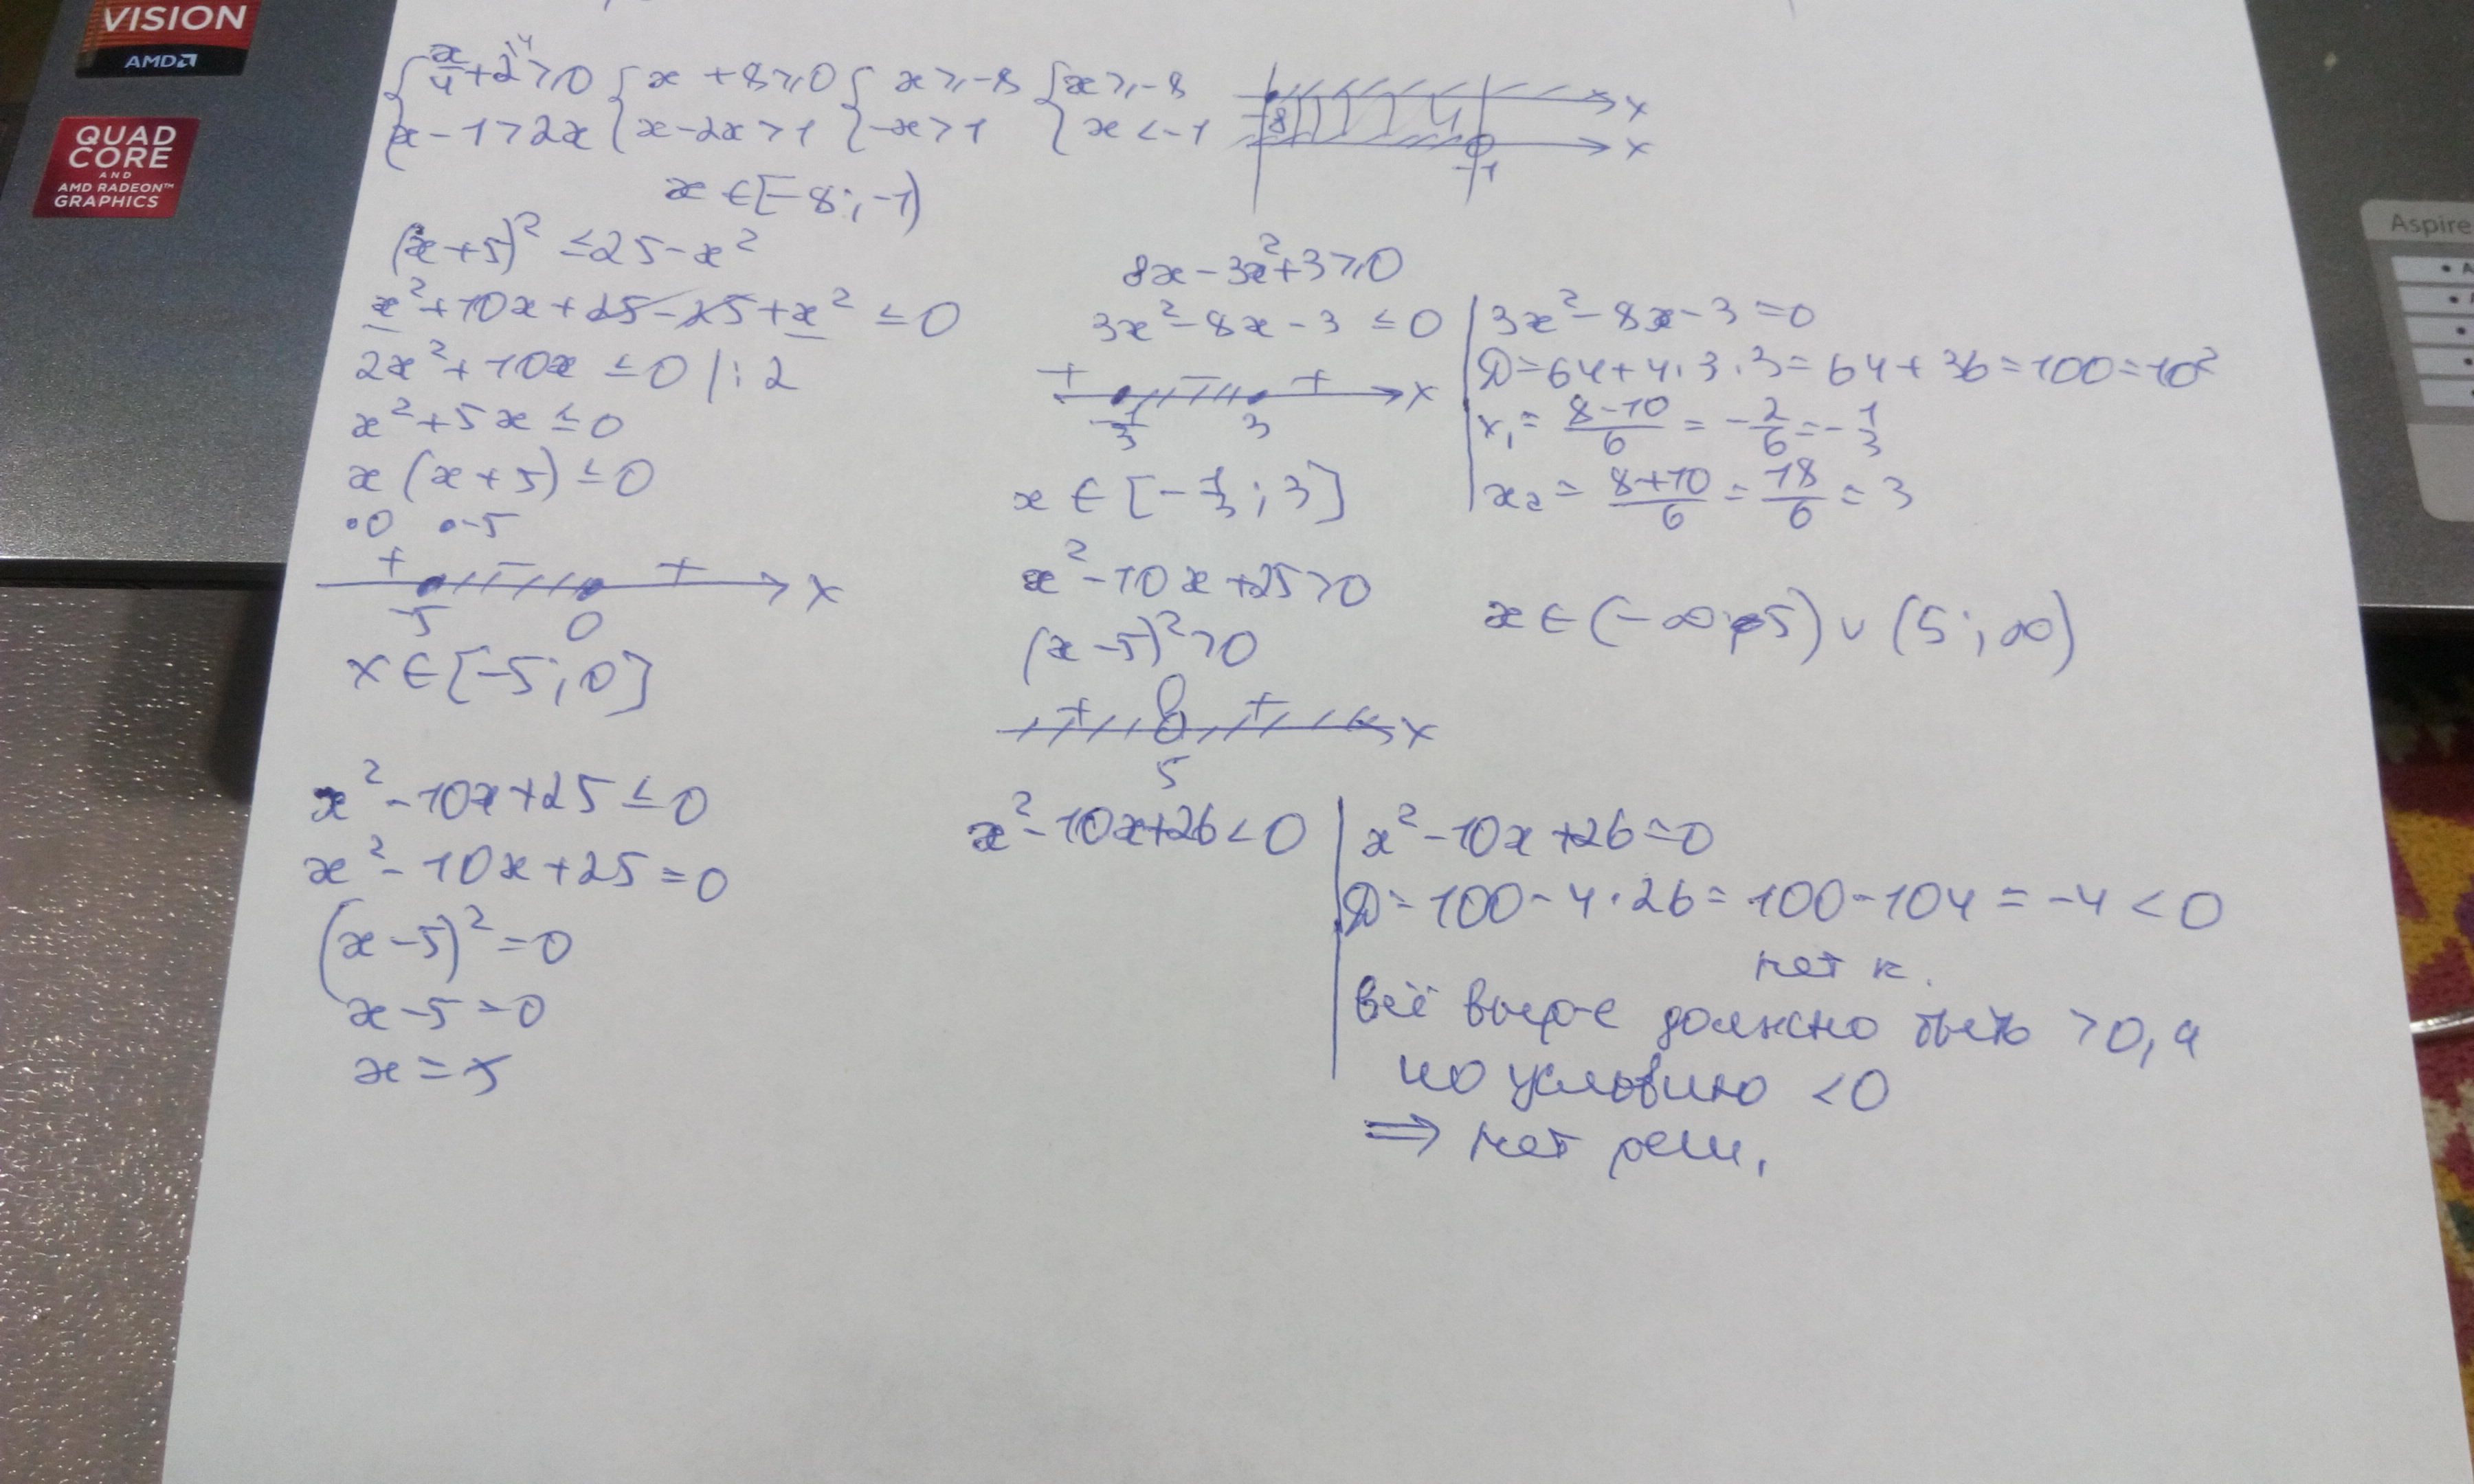 VISION
AMD
QUAD
CORE
AND
AMD RADEON™
GRAPHICS
Aspire
{ x/4 + 2 ≥ 0 { x + 8 ≥ 0 { x ≥ -8 { x ≥ -8
x - 1 > 2x x - 2x > 1 -x > 1 x < -1
-8 x
-1 x
x ∈ [-8; -1)
(x+5)² ≤ 25 - x²
x² + 10x + 25 - 25 + x² ≤ 0
2x² + 10x ≤ 0 | : 2
x² + 5x ≤ 0
x (x + 5) ≤ 0
• 0 • -5
+ - + x
-5 0
x ∈ [-5; 0]
8x - 3x² + 3 ≥ 0
3x² - 8x - 3 ≤ 0
+ - + x
-1/3 3
x ∈ [-1/3; 3]
3x² - 8x - 3 = 0
D = 64 + 4·3·3 = 64 + 36 = 100 = 10²
x₁ = (8-10)/6 = -2/6 = -1/3
x₂ = (8+10)/6 = 18/6 = 3
x² - 10x + 25 > 0
(x - 5)² > 0
+ + x
5
x ∈ (-∞; 5) ∪ (5; ∞)
x² - 10x + 25 ≤ 0
x² - 10x + 25 = 0
(x - 5)² = 0
x - 5 = 0
x = 5
x² - 10x + 26 < 0
x² - 10x + 26 = 0
D = 100 - 4·26 = 100 - 104 = -4 < 0
нет к.
всё выр-е должно быть > 0, а
по условию < 0
⇒ нет реш.